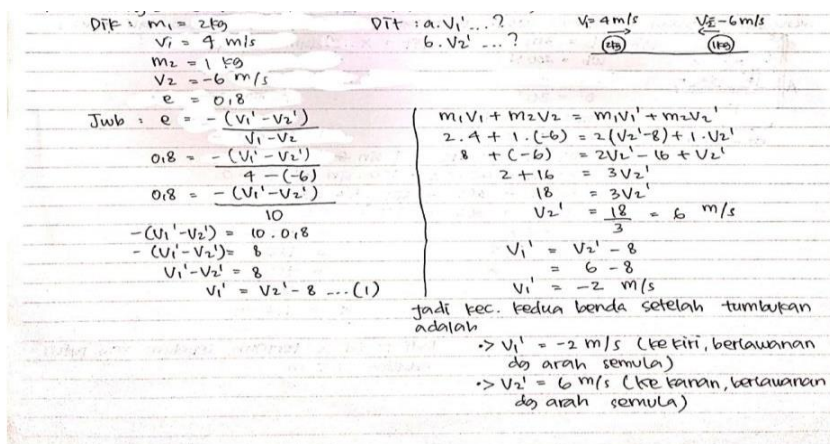 Dik : m₁ = 2kg
V₁ = 4 m/s
m₂ = 1 kg
V₂ = -6 m/s
e = 0,8
Dit : a. V₁' ... ?
b. V₂' ... ?
V₁= 4 m/s V₂=-6m/s
2kg 1kg
Jwb : e = -(V₁'-V₂')
V₁-V₂
0,8 = -(V₁'-V₂')
4-(-6)
0,8 = -(V₁'-V₂')
10
-(V₁'-V₂') = 10.0,8
-(V₁'-V₂')= 8
V₁'-V₂' = 8
V₁' = V₂'-8 ...(1)
m₁V₁ + m₂V₂ = m₁V₁' + m₂V₂'
2.4 + 1.(-6) = 2(V₂'-8)+1.V₂'
8 + (-6) = 2V₂'-16 + V₂'
2+16 = 3V₂'
18 = 3V₂'
V₂' = 18 = 6 m/s
3
V₁' = V₂' - 8
= 6 - 8
V₁' = -2 m/s
Jadi kec. kedua benda setelah tumbukan
adalah
·> V₁' = -2 m/s (ke kiri, berlawanan
dg arah semula)
·> V₂' = 6 m/s (ke kanan, berlawanan
dg arah semula)